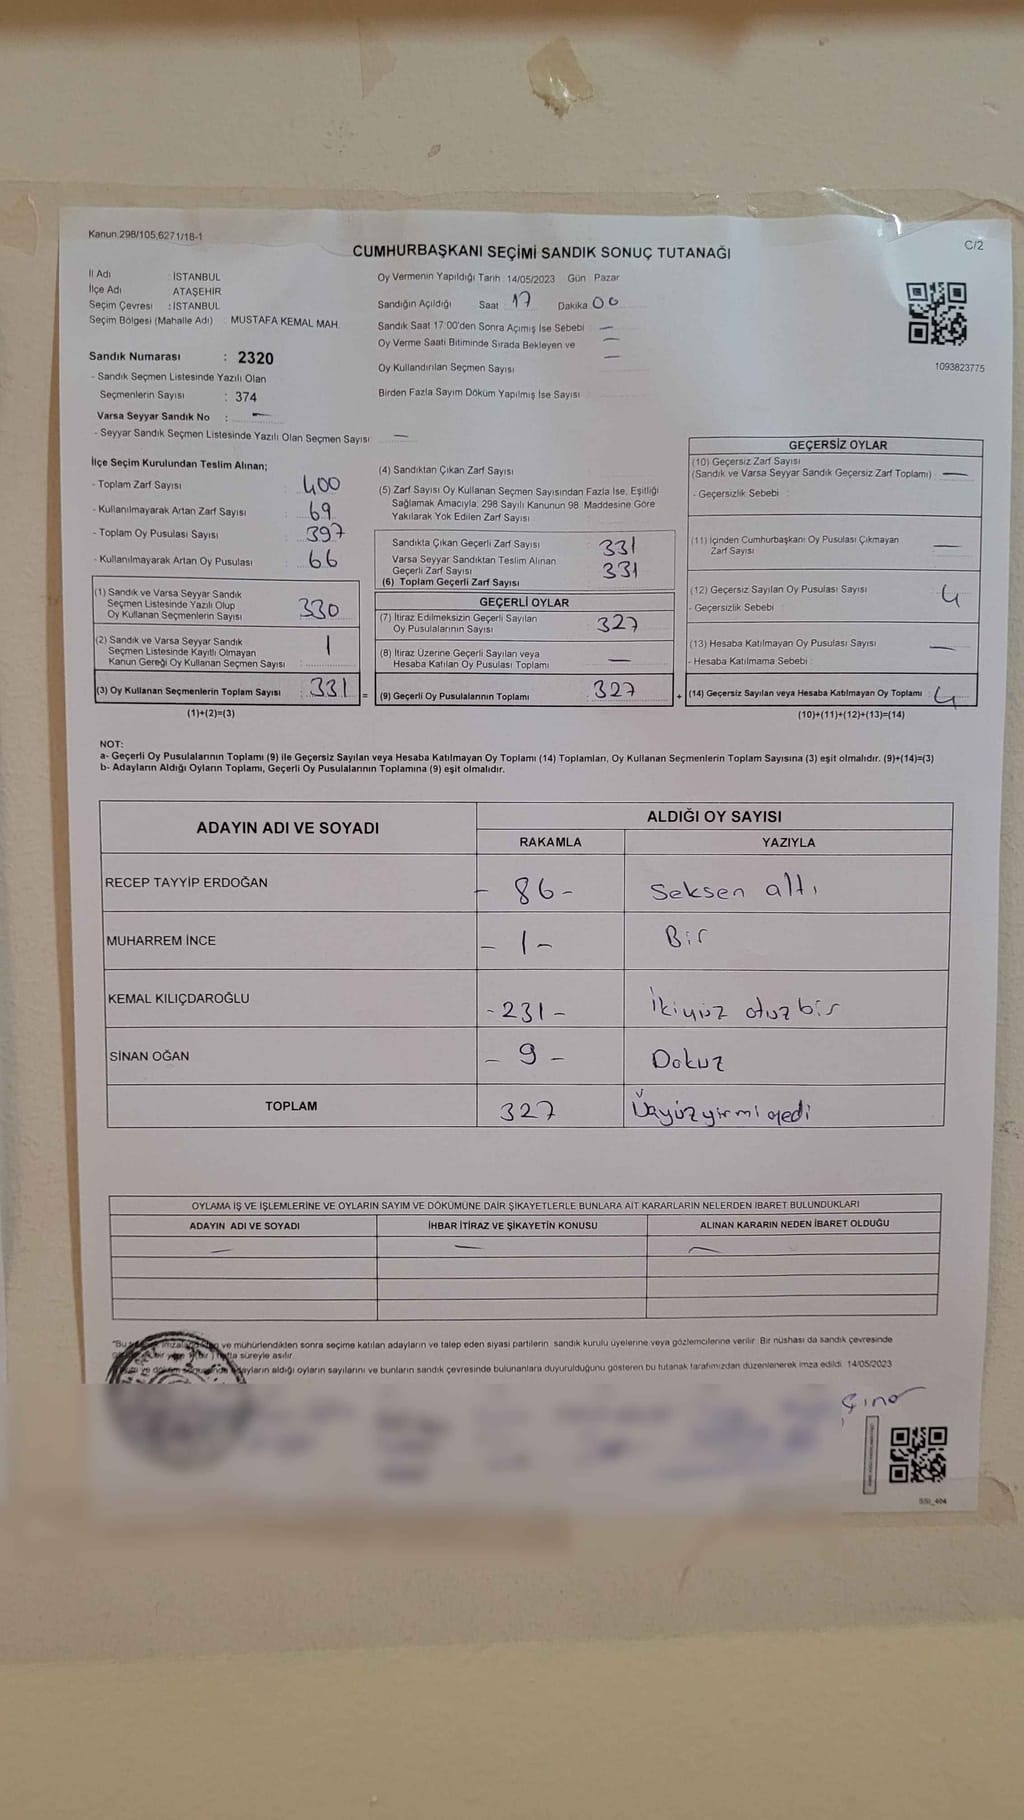 Kanun 298/105,6271/18-1
CUMHURBAŞKANI SEÇİMİ SANDIK SONUÇ TUTANAĞI
C/2
İl Adı : İSTANBUL
İlçe Adı : ATAŞEHİR
Seçim Çevresi : İSTANBUL
Seçim Bölgesi (Mahalle Adı) : MUSTAFA KEMAL MAH.
Oy Vermenin Yapıldığı Tarih : 14/05/2023 Gün : Pazar
Sandığın Açıldığı Saat : 17 Dakika 00
Sandık Saat 17:00'den Sonra Açımış İse Sebebi —
Oy Verme Saati Bitiminde Sırada Bekleyen ve —
Oy Kullandırılan Seçmen Sayısı —
Birden Fazla Sayım Döküm Yapılmış İse Sayısı
1093823775
Sandık Numarası : 2320
- Sandık Seçmen Listesinde Yazılı Olan
Seçmenlerin Sayısı : 374
Varsa Seyyar Sandık No : —
- Seyyar Sandık Seçmen Listesinde Yazılı Olan Seçmen Sayısı —
İlçe Seçim Kurulundan Teslim Alınan;
- Toplam Zarf Sayısı : 400
- Kullanılmayarak Artan Zarf Sayısı : 69
- Toplam Oy Pusulası Sayısı : 397
- Kullanılmayarak Artan Oy Pusulası : 66
(1) Sandık ve Varsa Seyyar Sandık
Seçmen Listesinde Yazılı Olup
Oy Kullanan Seçmenlerin Sayısı 330
(2) Sandık ve Varsa Seyyar Sandık
Seçmen Listesinde Kayıtlı Olmayan
Kanun Gereği Oy Kullanan Seçmen Sayısı : 1
(3) Oy Kullanan Seçmenlerin Toplam Sayısı : 331 =
(1)+(2)=(3)
(4) Sandıktan Çıkan Zarf Sayısı
(5) Zarf Sayısı Oy Kullanan Seçmen Sayısından Fazla İse, Eşitliği
Sağlamak Amacıyla, 298 Sayılı Kanunun 98. Maddesine Göre
Yakılarak Yok Edilen Zarf Sayısı
Sandıkta Çıkan Geçerli Zarf Sayısı 331
Varsa Seyyar Sandıktan Teslim Alınan
Geçerli Zarf Sayısı 331
(6) Toplam Geçerli Zarf Sayısı
GEÇERLİ OYLAR
(7) İtiraz Edilmeksizin Geçerli Sayılan
Oy Pusulalarının Sayısı 327
(8) İtiraz Üzerine Geçerli Sayılan veya
Hesaba Katılan Oy Pusulası Toplamı —
(9) Geçerli Oy Pusulalarının Toplamı 327 +
GEÇERSİZ OYLAR
(10) Geçersiz Zarf Sayısı
(Sandık ve Varsa Seyyar Sandık Geçersiz Zarf Toplamı) —
- Geçersizlik Sebebi :
(11) İçinden Cumhurbaşkanı Oy Pusulası Çıkmayan
Zarf Sayısı —
(12) Geçersiz Sayılan Oy Pusulası Sayısı 4
- Geçersizlik Sebebi
(13) Hesaba Katılmayan Oy Pusulası Sayısı —
- Hesaba Katılmama Sebebi :
(14) Geçersiz Sayılan veya Hesaba Katılmayan Oy Toplamı : 4
(10)+(11)+(12)+(13)=(14)
NOT:
a- Geçerli Oy Pusulalarının Toplamı (9) ile Geçersiz Sayılan veya Hesaba Katılmayan Oy Toplamı (14) Toplamları, Oy Kullanan Seçmenlerin Toplam Sayısına (3) eşit olmalıdır. (9)+(14)=(3)
b- Adayların Aldığı Oyların Toplamı, Geçerli Oy Pusulalarının Toplamına (9) eşit olmalıdır.
ADAYIN ADI VE SOYADI ALDIĞI OY SAYISI
RAKAMLA YAZIYLA
RECEP TAYYİP ERDOĞAN - 86 - Seksen altı
MUHARREM İNCE - 1 - Bir
KEMAL KILIÇDAROĞLU - 231 - İkiyüz otuz bir
SİNAN OĞAN - 9 - Dokuz
TOPLAM 327 Üçyüz yirmi yedi
OYLAMA İŞ VE İŞLEMLERİNE VE OYLARIN SAYIM VE DÖKÜMÜNE DAİR ŞİKAYETLERLE BUNLARA AİT KARARLARIN NELERDEN İBARET BULUNDUKLARI
ADAYIN ADI VE SOYADI İHBAR İTİRAZ VE ŞİKAYETİN KONUSU ALINAN KARARIN NEDEN İBARET OLDUĞU
— — —
"Bu ve mühürlendikten sonra seçime katılan adayların ve talep eden siyasi partilerin sandık kurulu üyelerine veya gözlemcilerine verilir. Bir nüshası da sandık çevresinde
süreyle asılır.
adayların aldığı oyların sayılarını ve bunların sandık çevresinde bulunanlara duyurulduğunu gösteren bu tutanak tarafımızdan düzenlenerek imza edildi. 14/05/2023
Çınar
SSI_404